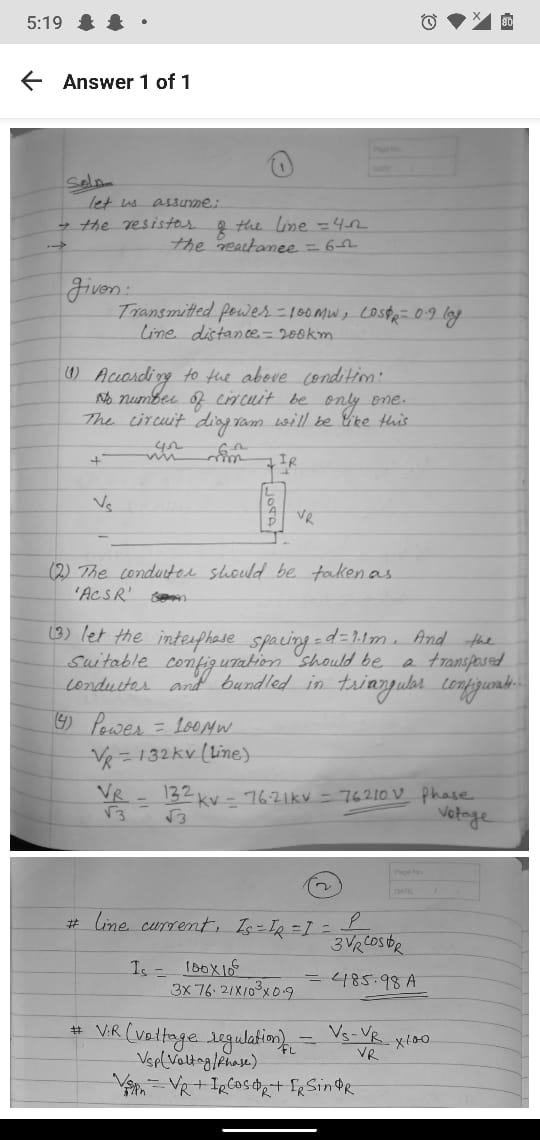 5:19
80
Answer 1 of 1
1
Soln
let us assume:
→ the resistor of the line = 4Ω
→ the reactance = 6Ω
given:
Transmitted Power = 100MW, cosϕR = 0.9 lag
line distance = 200km
(1) According to the above condition:
No number of circuit be only one.
The circuit diagram will be like this
4Ω 6Ω
+
IR
Vs
LOAD
VR
-
-
(2) The conductor should be taken as
'ACSR'
(3) let the interphase spacing = d = 1.1m. And the
Suitable configuration should be a transposed
conductor and bundled in triangular
(4) Power = 100MW
VR = 132kv (Line)
VR/√3 = 132/√3 kv = 76.21kv = 76210 V Phase
Votage
Page No.
DATE
2
# line current, Is = IR = I = P / 3VRcosϕR
Is = 100×10⁶ / 3×76.21×10³×0.9 = 485.98 A
# V.R (voltage regulation)FL = Vs-VR / VR ×100
Vsp(Voltag/Phase)
= VR + IRCosϕR + IR SinϕR